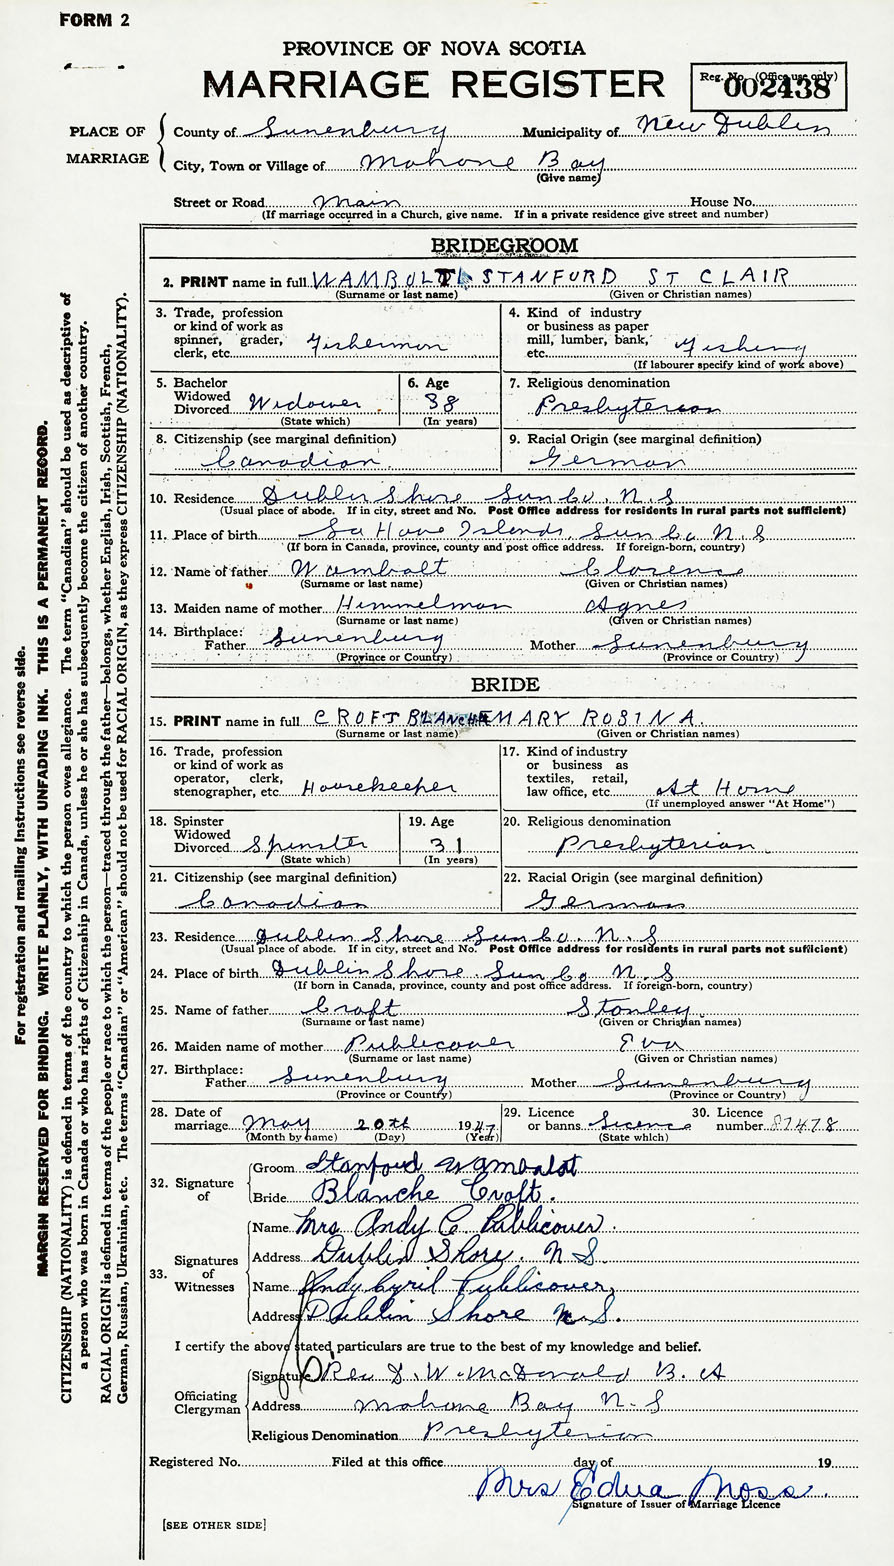 FORM 2
PROVINCE OF NOVA SCOTIA
MARRIAGE REGISTER
Reg. No. (Office use only)
002438
PLACE OF MARRIAGE
County of Lunenburg Municipality of New Dublin
City, Town or Village of Mahone Bay
(Give name)
Street or Road Main House No.
(If marriage occurred in a Church, give name. If in a private residence give street and number)
BRIDEGROOM
2. PRINT name in full WAMBOLT STANFURD ST CLAIR
(Surname or last name) (Given or Christian names)
3. Trade, profession or kind of work as spinner, grader, clerk, etc. Fisherman
4. Kind of industry or business as paper mill, lumber, bank, etc. Fishing
(If labourer specify kind of work above)
5. Bachelor Widowed Divorced Widower
(State which)
6. Age 38
(In years)
7. Religious denomination Presbyterian
8. Citizenship (see marginal definition) Canadian
9. Racial Origin (see marginal definition) German
10. Residence Dublin Shore Lun Co. N.S
(Usual place of abode. If in city, street and No. Post Office address for residents in rural parts not sufficient)
11. Place of birth La Have Islands, Lun Co N.S
(If born in Canada, province, county and post office address. If foreign-born, country)
12. Name of father Wambolt Clarence
(Surname or last name) (Given or Christian names)
13. Maiden name of mother Himmelman Agnes
(Surname or last name) (Given or Christian names)
14. Birthplace: Father Lunenburg Mother Lunenburg
(Province or Country) (Province or Country)
BRIDE
15. PRINT name in full CROFT BLANCHE MARY ROSINA.
(Surname or last name) (Given or Christian names)
16. Trade, profession or kind of work as operator, clerk, stenographer, etc. Housekeeper
17. Kind of industry or business as textiles, retail, law office, etc. At Home
(If unemployed answer "At Home")
18. Spinster Widowed Divorced Spinster
(State which)
19. Age 31
(In years)
20. Religious denomination Presbyterian
21. Citizenship (see marginal definition) Canadian
22. Racial Origin (see marginal definition) German
23. Residence Dublin Shore Lun Co. N.S
(Usual place of abode. If in city, street and No. Post Office address for residents in rural parts not sufficient)
24. Place of birth Dublin Shore. Lun Co N.S
(If born in Canada, province, county and post office address. If foreign-born, country)
25. Name of father Croft Stanley
(Surname or last name) (Given or Christian names)
26. Maiden name of mother Publicover Eva
(Surname or last name) (Given or Christian names)
27. Birthplace: Father Lunenburg Mother Lunenburg
(Province or Country) (Province or Country)
28. Date of marriage May 20th 1947
(Month by name) (Day) (Year)
29. Licence or banns Licence
(State which)
30. Licence number 87478
32. Signature of
Groom Stanford Wambolt
Bride Blanche Croft.
33. Signatures of Witnesses
Name Mrs Andy C Publicover.
Address Dublin Shore. N S.
Name Andy Cyril Publicover,
Address Dublin Shore N.S.
I certify the above stated particulars are true to the best of my knowledge and belief.
Officiating Clergyman
Signature Rev D. W. McDonald B. A
Address Mahone Bay N. S
Religious Denomination Presbyterian
Registered No. Filed at this office day of 19
Mrs Edna Moss
Signature of Issuer of Marriage Licence
[SEE OTHER SIDE]
For registration and mailing instructions see reverse side.
MARGIN RESERVED FOR BINDING. WRITE PLAINLY, WITH UNFADING INK. THIS IS A PERMANENT RECORD.
CITIZENSHIP (NATIONALITY) is defined in terms of the country to which the person owes allegiance. The term "Canadian" should be used as descriptive of
a person who was born in Canada or who has rights of Citizenship in Canada, unless he or she has subsequently become the citizen of another country.
RACIAL ORIGIN is defined in terms of the people or race to which the person—traced through the father—belongs, whether English, Irish, Scottish, French,
German, Russian, Ukrainian, etc. The terms "Canadian" or "American" should not be used for RACIAL ORIGIN, as they express CITIZENSHIP (NATIONALITY).